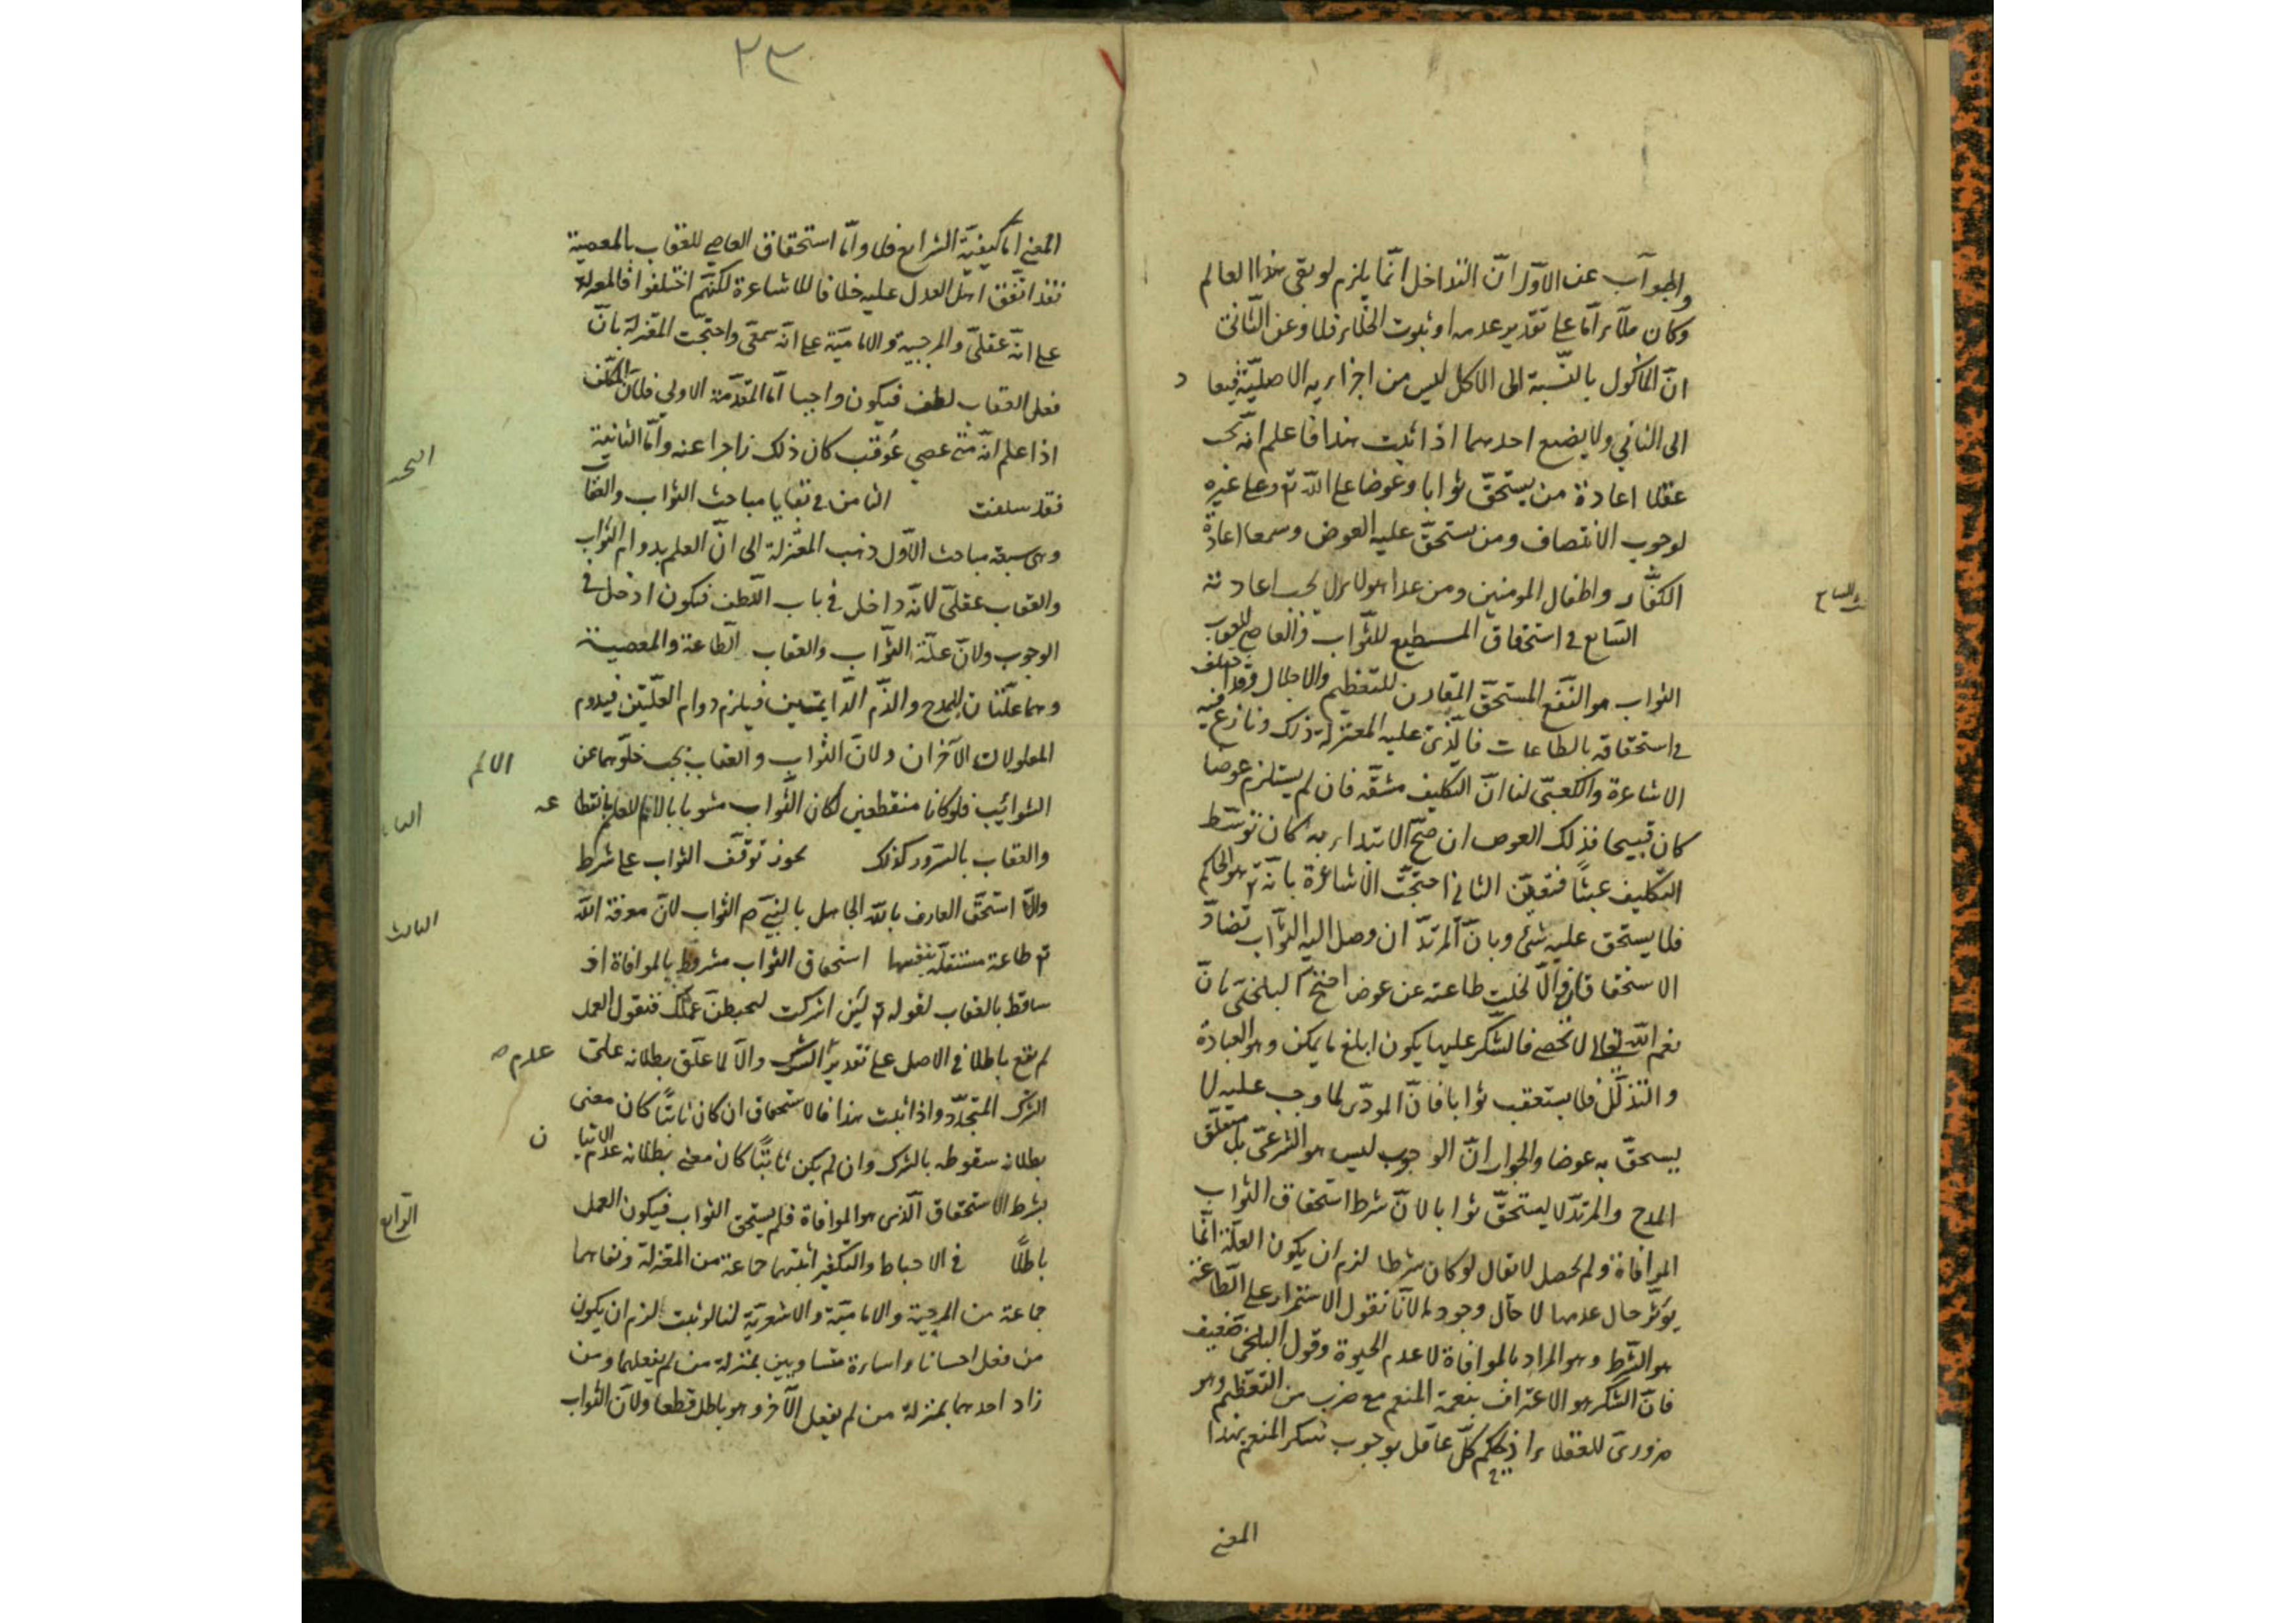 والجواب عن الاول انّ التداخل انّما يلزم لو بقى هذا العالم
وكان ملآء امّا على تقدير عدمه او ثبوت الخلاء فلا وعن الثانى
انّ المأكول بالنسبة الى الاكل ليس من اجزايه الاصليّة فيعا د
الى الثاني ولا يضيع احدهما اذا ثبت هذا فاعلم انه يجب
عقلا اعادة من يستحقّ ثوابا وعوضا على اللّه تع وعلى غيره
لوجوب الانتصاف ومن يستحقّ عليه العوض وسمعا اعادة
الكفّار واطفال المومنين ومن عدا هولاء لا يجب اعادته
السّابع في استحقاق المسطيع للثّواب والعاصي للعقاب
الثواب هو النّفع المستحقّ المقارن للتعظيم والاجلال وقد اختلف
في استحقاقه بالطاعات فالّذى عليه المعتزلة ذلك ونازع فيه
الاشاعرة والكعبىّ لنا انّ التكليف مشقّة فان لم يستلزم عوضا
كان قبيحا فذلك العوض ان صحّ الابتداء به كان توسّط
التكليف عبثًا فتعيّن الثاني احتجّت الاشاعرة بانّه تع هو الحاكم
فلا يستحق عليه شئ وبانّ المرتدّ ان وصل اليه الثواب تضادّ
الاستحقاقان والّا لخلت طاعته عن عوض احتجّ البلخىّ بانّ
نعم اللّه تعالى لا تحصى فالشكر عليها يكون ابلغ ما يمكن وهو العبادة
والتذلّل فلا يستعقب ثوابا فانّ المودّى لما وجب عليه لا
يسحقّ به عوضا والجواب انّ الوجوب ليس هو الشرعىّ بل متعلّق
المدح والمرتدّ لا يستحقّ ثوابا لانّ شرط استحقاق الثواب
الموافاة ولم يحصل لا يقال لو كان شرطا لزم ان يكون العلّة انّما
يوثّر حال عدمها لا حال وجودها لانّا نقول الاستمرار على الطّاعة
هو الشّرط وهو المراد بالموافاة لا عدم الحيوة وقول البلخى ضعيف
فانّ الشكر هو الاعتراف بنعمة المنعم مع ضرب من التعظيم وهو
ضرورىّ للعقلاء اذ يحكم كلّ عاقل بوجوب شكر المنعم بهذا
المعنى
٢٣
المعنى امّا كيفيّة الشرايع فلا وامّا استحقاق العاصي للعقاب بالمعصية
فقد اتّفق اهل العدل عليه خلافا للاشاعرة لكنّهم اختلفوا فالمعتزلة
على انّه عقلىّ والمرجيية والاماميّة على انّه سمعىّ واحتجّت المعتزلة بانّ
فعل العقاب لطف فيكون واجبا امّا المقدّمة الاولى فلانّ المكلّف
اذا علم انّه متى عصى عُوقب كان ذلك زاجرا عنه وامّا الثانية
فقد سلفت الثامن في بقايا مباحث الثواب والعقاب
وهى سبعة مباحث الاوّل ذهب المعتزلة الى انّ العلم بدوام الثواب
والعقاب عقلىّ لانّه داخل في باب اللّطف فيكون ادخل في
الوجوب ولانّ علّة الثّواب والعقاب الطّاعة والمعصية
وهما علّتان للمدح والذّم الدّايمين فيلزم دوام العلّتين فيدوم
المعلولان الآخران ولانّ الثّواب والعقاب يجب خلّوهما عن
الشوائب فلو كانا منقطعين لكان الثّواب مشوبا بالالم للعلم بانقطا عه
والعقاب بالسّرور كذلك يجوز توقّف الثواب على شرط
والّا استحقّ العارف باللّه الجاهل بالنبىّ ص الثواب لانّ معرفة اللّه
تع طاعة مستقلّة بنفسها استحقاق الثواب مشروط بالموافاة او
ساقط بالعقاب لقوله تع لئن اشركت ليحبطنّ عملك فنقول العمل
لم يقع باطلا في الاصل على تقدير الشرك والّا لما علّق بطلانه على
الشرك المتجدّد واذا ثبت هذا فالاستحقاق ان كان ثابتًا كان معنى
بطلانه سقوطه بالشرك وان لم يكن ثابتًا كان معنى بطلانه عدم الاتيا ن
بشرط الاستحقاق الّذى هو الموافاة فلم يستحق الثواب فيكون العمل
باطلًا في الاحباط والتكفير اثبتهما جماعة من المعتزلة ونفاهما
جماعة من المرجية والاماميّة والاشعريّة لنا لو ثبت لزم ان يكون
من فعل احسانا واساءة متساويين بمنزلة من لم يفعلهما ومن
زاد احدهما بمنزلة من لم يفعل الآخر وهو باطل قطعا ولانّ الثواب
الالم
الثالث
عدم
الرّابع